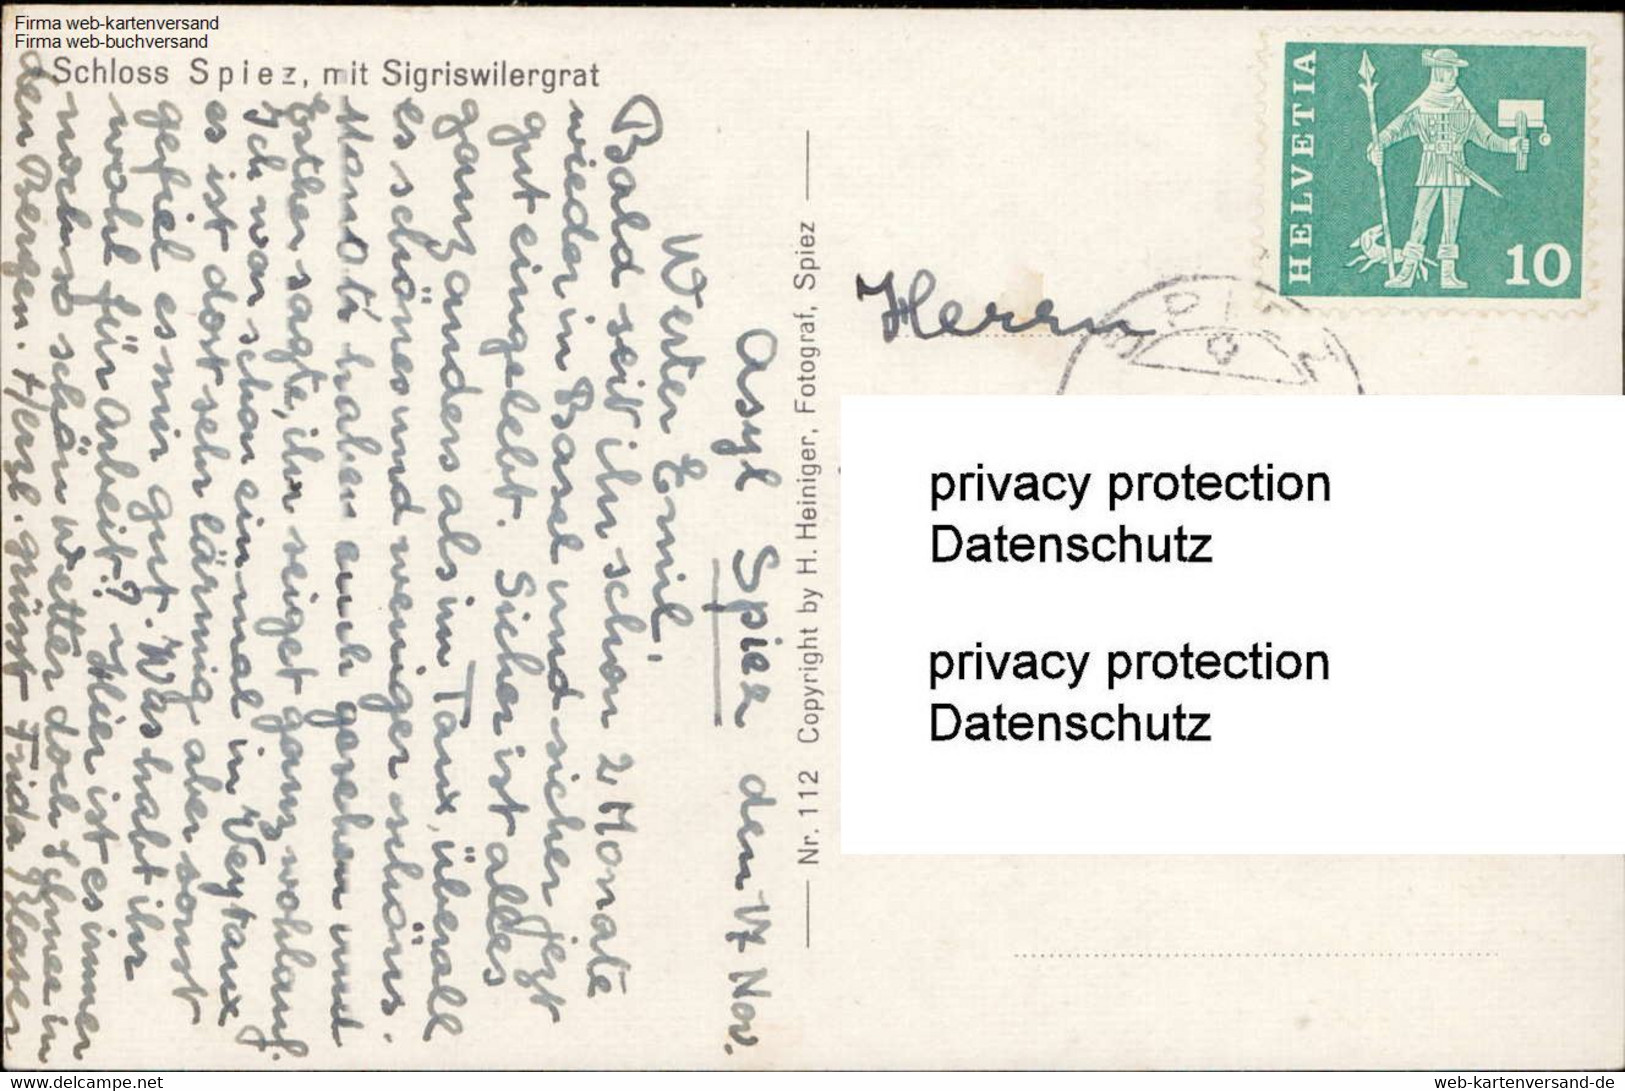 Firma web-kartenversand
Firma web-buchversand
Schloss Spiez, mit Sigriswilergrat
Asyl Spiez den 17 Nov.
Werter Emil,
Bald seit ihr schon 2 Monate
wieder in Basel und sicher jezt
gut eingelebt. Sicher ist alles
ganz anders als im Tanx, überall
es schönes und weniger schöns.
haben euch gesehen und
Esther sagte, ihr seiget ganz wohlauf.
Ich war schon einmal in Veytaux
es ist dort sehr lärmig aber sonst
gefiel es mir gut. Was habt ihr
wohl für Arbeit? Hier ist es immer
noch so schön Wetter doch Schnee in
den Bergen. Herzl. grüsst Frida Blaser
Nr. 112 Copyright by H. Heiniger, Fotograf, Spiez
HELVETIA
10
Herrn
privacy protection
Datenschutz
privacy protection
Datenschutz
www.delcampe.net
web-kartenversand-de